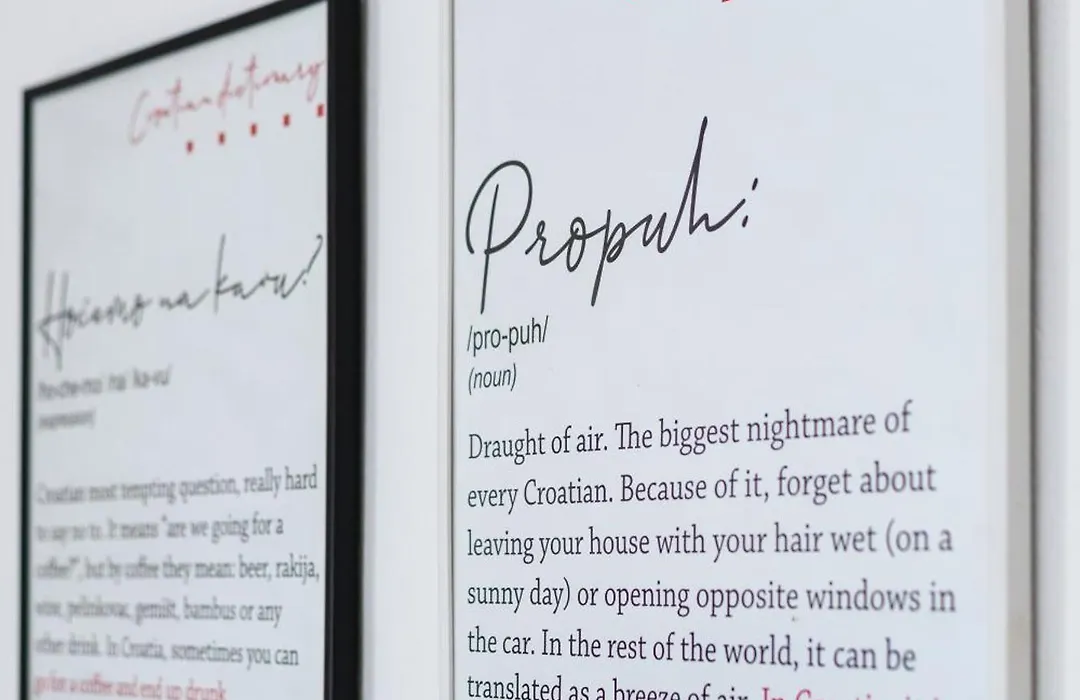 Croatian dictionary
Hoćemo na kavu?
(expression)
Croatian most tempting question, really hard
to say no to. It means "are we going for a
coffee?", but by coffee they mean: beer, rakija,
wine, pelinkovac, gemišt, bambus or any
other drink. In Croatia, sometimes you can
go for a coffee and end up drunk
Propuh:
/pro-puh/
(noun)
Draught of air. The biggest nightmare of
every Croatian. Because of it, forget about
leaving your house with your hair wet (on a
sunny day) or opening opposite windows in
the car. In the rest of the world, it can be
translated as a breeze of air. In